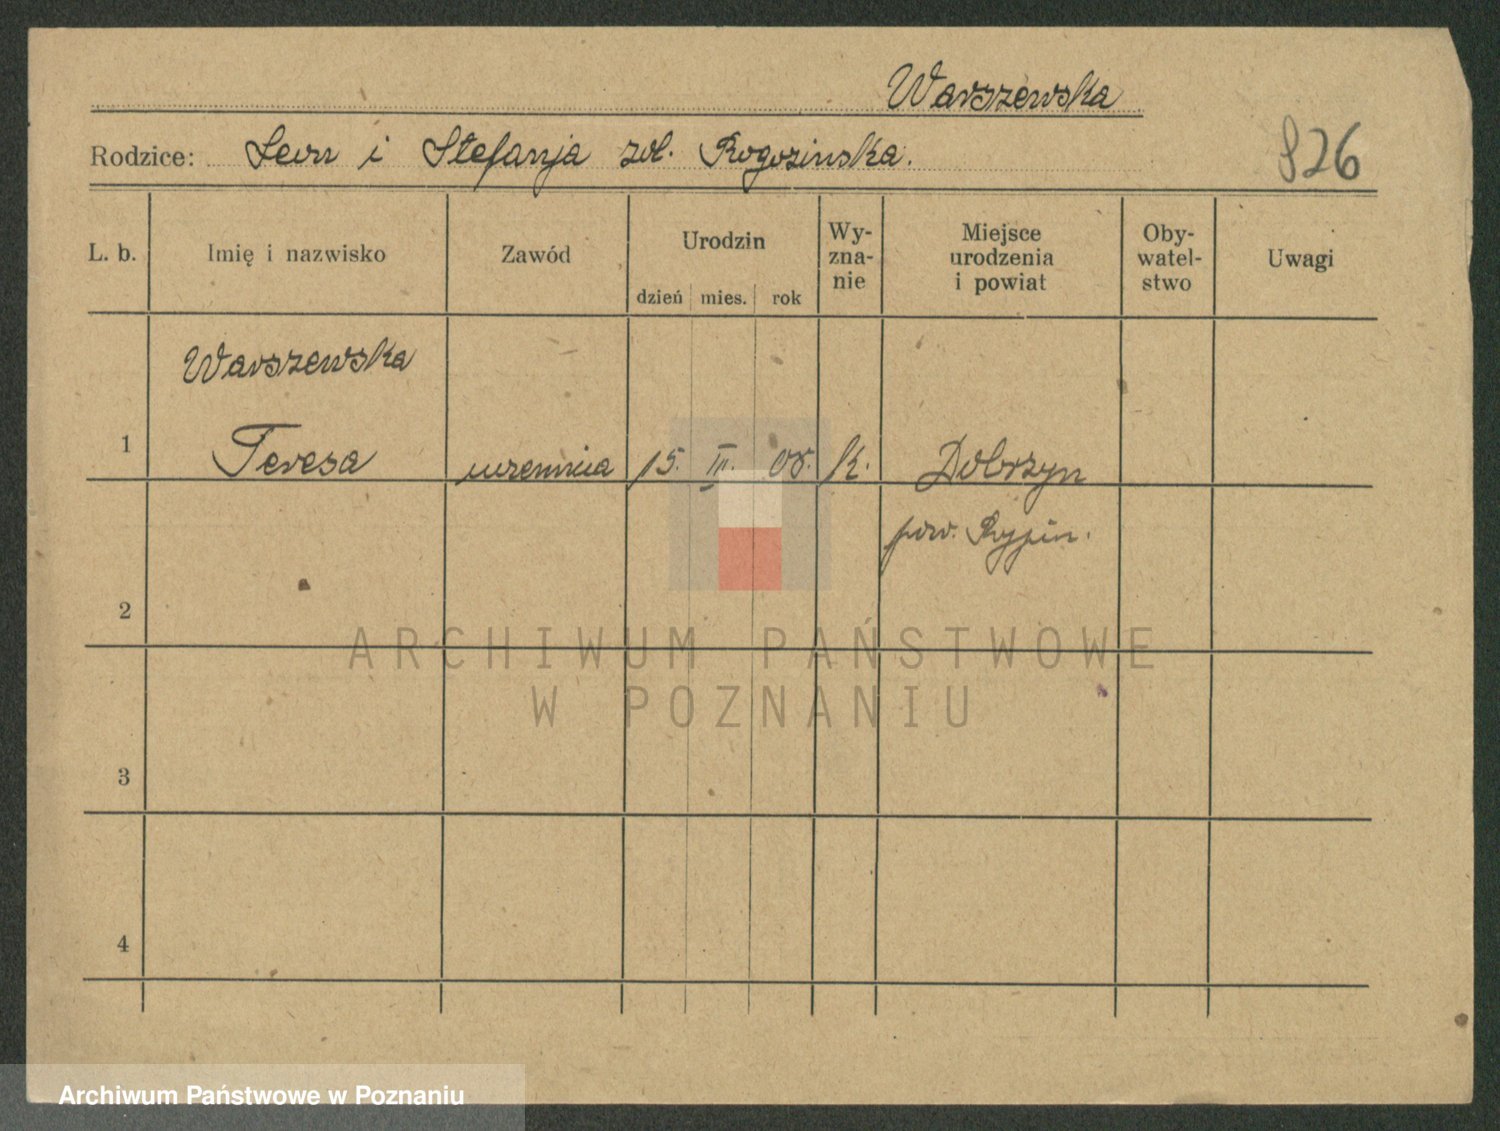 Warszewska
Rodzice: Leon i Stefanja zd. Rogozinska.
826
L. b.
Imię i nazwisko
Zawód
Urodzin
dzień mies. rok
Wy-
zna-
nie
Miejsce
urodzenia
i powiat
Oby-
watel-
stwo
Uwagi
Warszewska
1 Teresa uczennica 15. III. 08. k. Dobrzyn
pow. Rypin.
2
3
4
ARCHIWUM PAŃSTWOWE
W POZNANIU
Archiwum Państwowe w Poznaniu